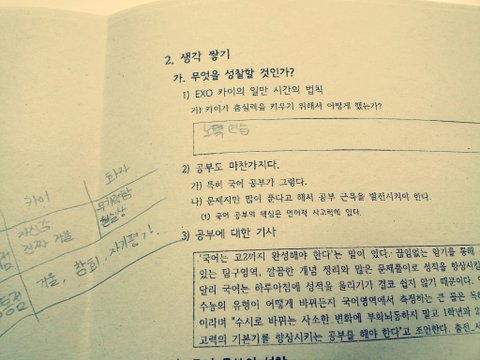 2. 생각 쌓기
가. 무엇을 성찰할 것인가?
1) EXO 카이의 일만 시간의 법칙
가) 카이가 춤실력을 키우기 위해서 어떻게 했는가?
노력 연습
2) 공부도 마찬가지다.
가) 특히 국어 공부가 그렇다.
나) 문제지만 많이 푼다고 해서 공부 근육을 발전시켜야 한다.
(1) 국어 공부의 핵심은 언어적 사고력에 있다.
3) 공부에 대한 기사
'국어는 고2까지 완성해야 한다'는 말이 있다. 끊임없는 암기를 통해
있는 탐구영역, 깔끔한 개념 정리와 많은 문제풀이로 성적을 향상시킬
달리 국어는 하루아침에 성적을 올리기가 결코 쉽지 않기 때문이다.
수능의 유형이 어떻게 바뀌든지 국어영역에서 측정하는 큰 틀은 독
이라며 "수시로 바뀌는 사소한 변화에 부화뇌동하지 말고 1학년과 2
고력의 기본기를 향상시키는 공부를 해야 한다"고 조언한다. 출전_
카이
화자
자신의
진짜 거울
무기력함
현실상
거울, 자기평가!